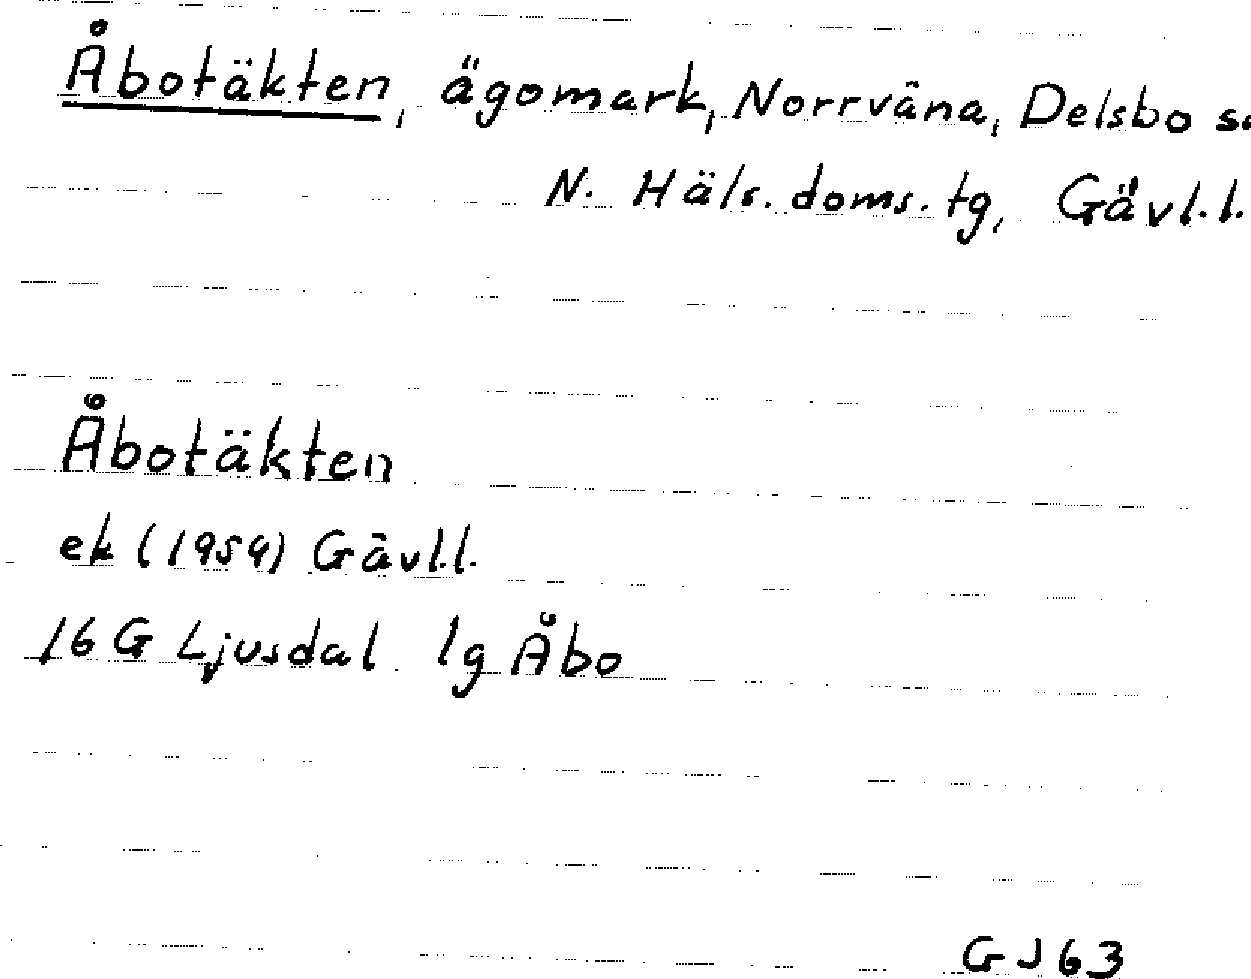 Åbotäkten, ägomark, Norrväna, Delsbo s
N. Häls. doms. tg, Gävl.l.
Åbotäkten
ek (1954) Gävl.l.
16 G Ljusdal lg Åbo
GJ 63